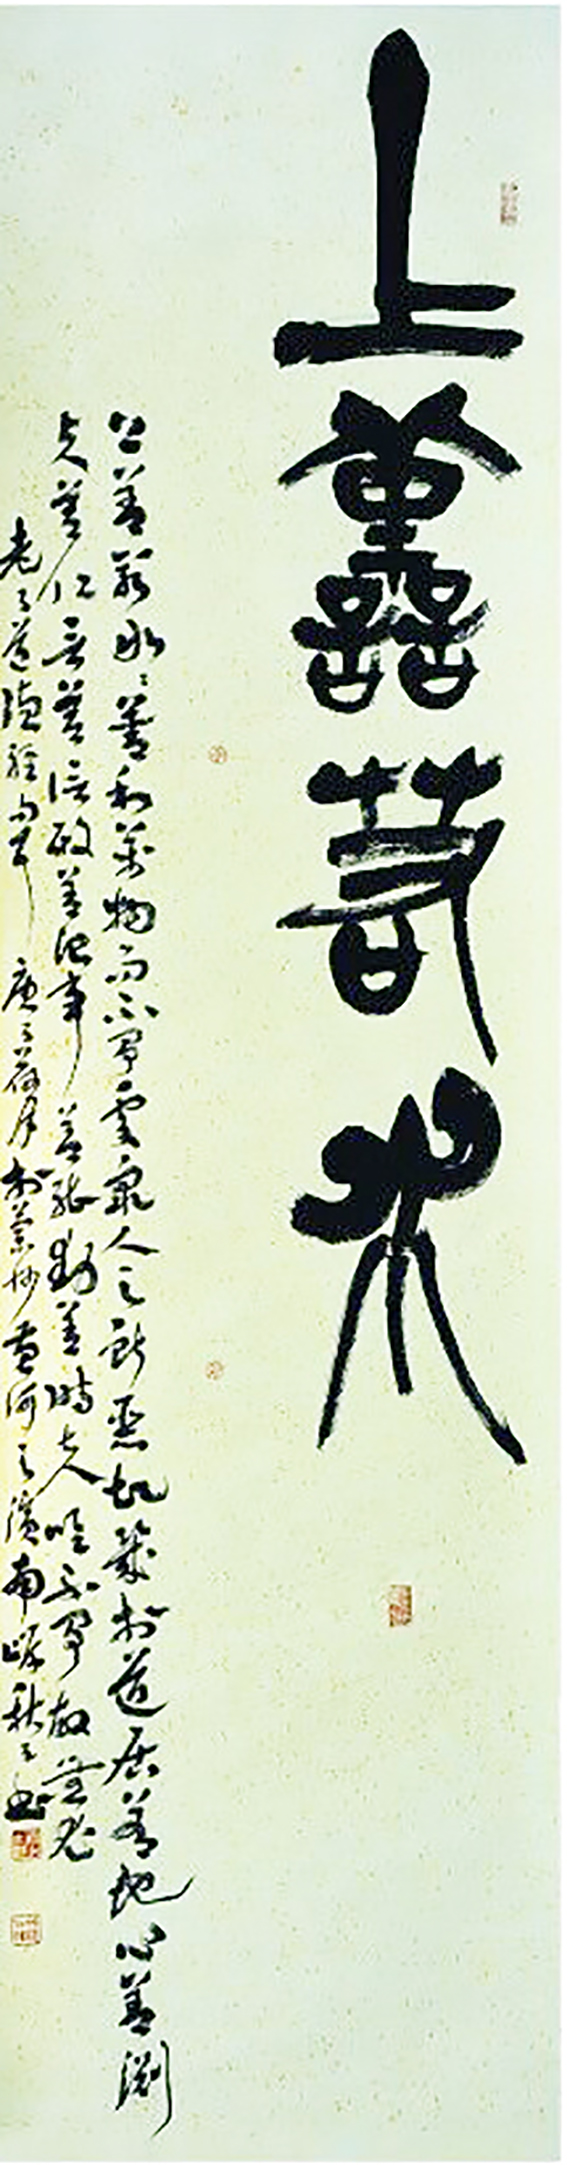 上善若水
上善若水水善利萬物而不爭處衆人之所惡故幾於道居善地心善渊
与善仁言善信政善治事善能動善時夫唯不爭故無尤
老子道德经句 庚子荷月於兰州黄河之濱南 秋 書